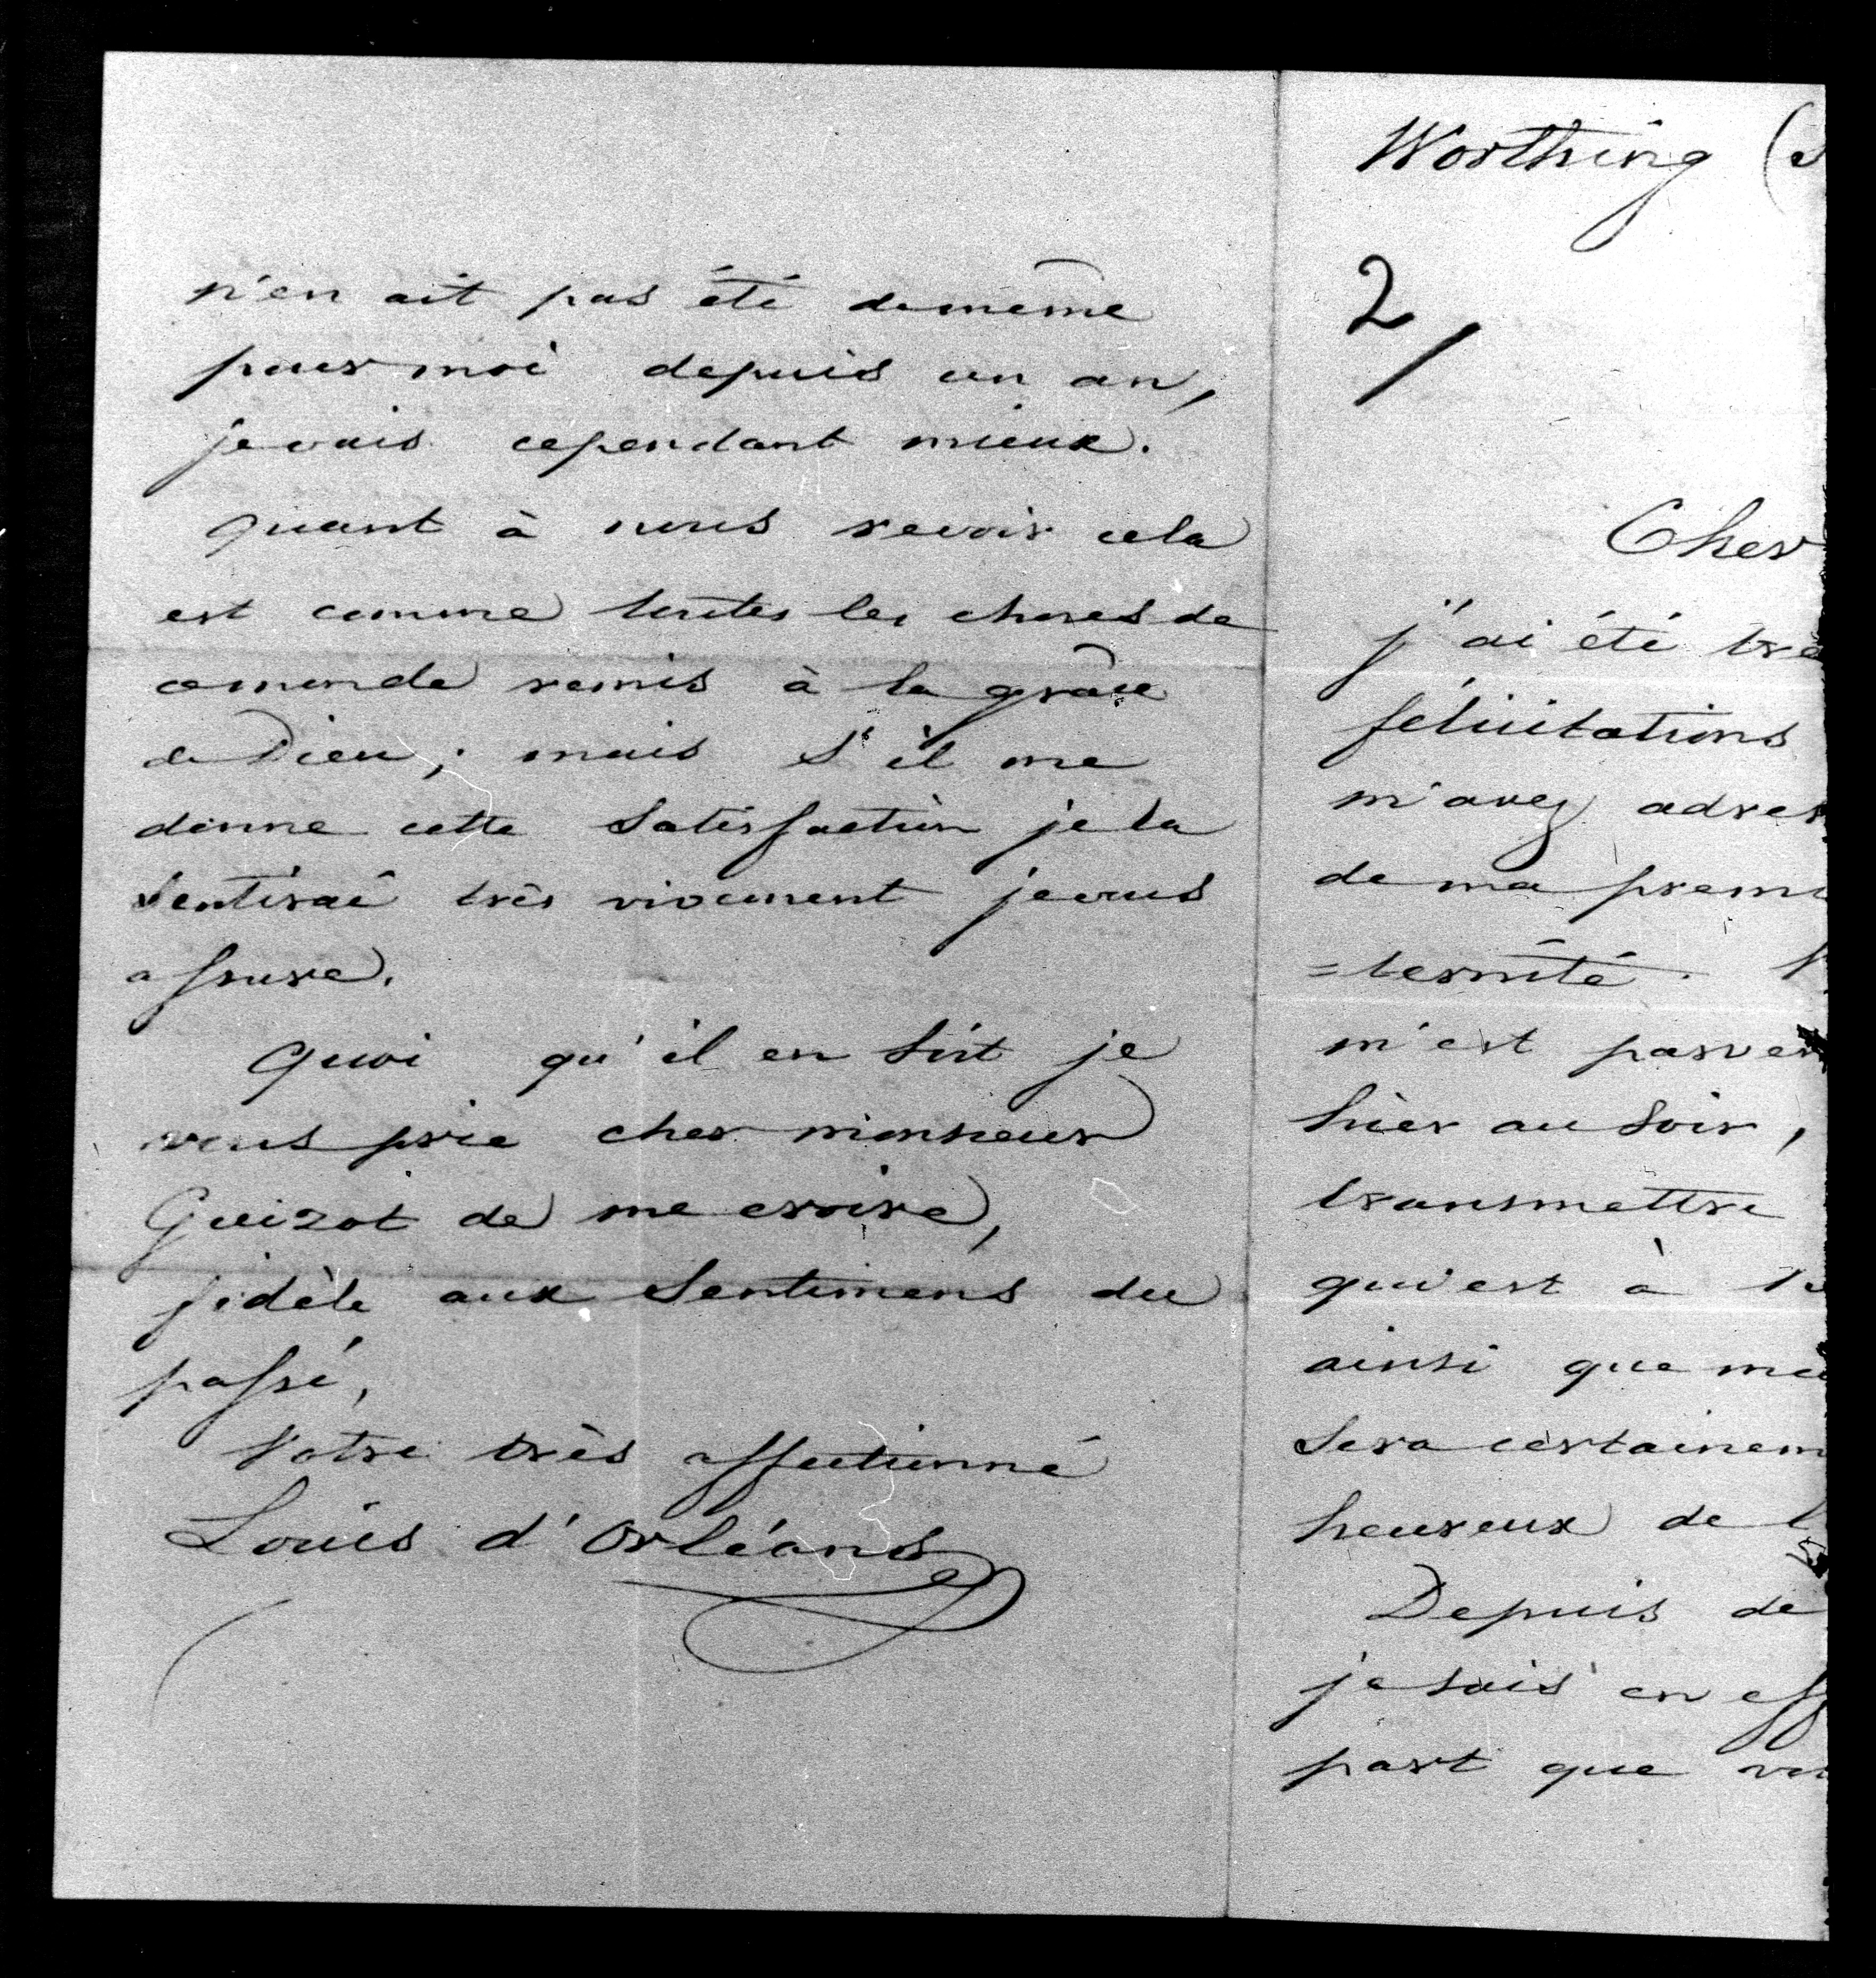 n'en ait pas été de même
pour moi depuis un an,
je vais cependant mieux.
Quant à nous revoir cela
est comme toutes les choses de
ce monde remis à la grâce
de Dieu; mais s'il me
donne cette satisfaction je la
sentirai très vivement je vous
assure.
Quoi qu'il en soit je
vous prie cher monsieur
Guizot de me croire,
fidèle aux sentimens du
passé,
Votre très affectionné
Louis d'Orléans
Worthing (
2/
Cher
j'ai été trè
félicitations
m'avez adres
de ma premi
=ternité.
m'est parve
hier au soir,
transmettre
qui est à
ainsi que
sera certainem
heureux de
Depuis de
je sais en eff
part que